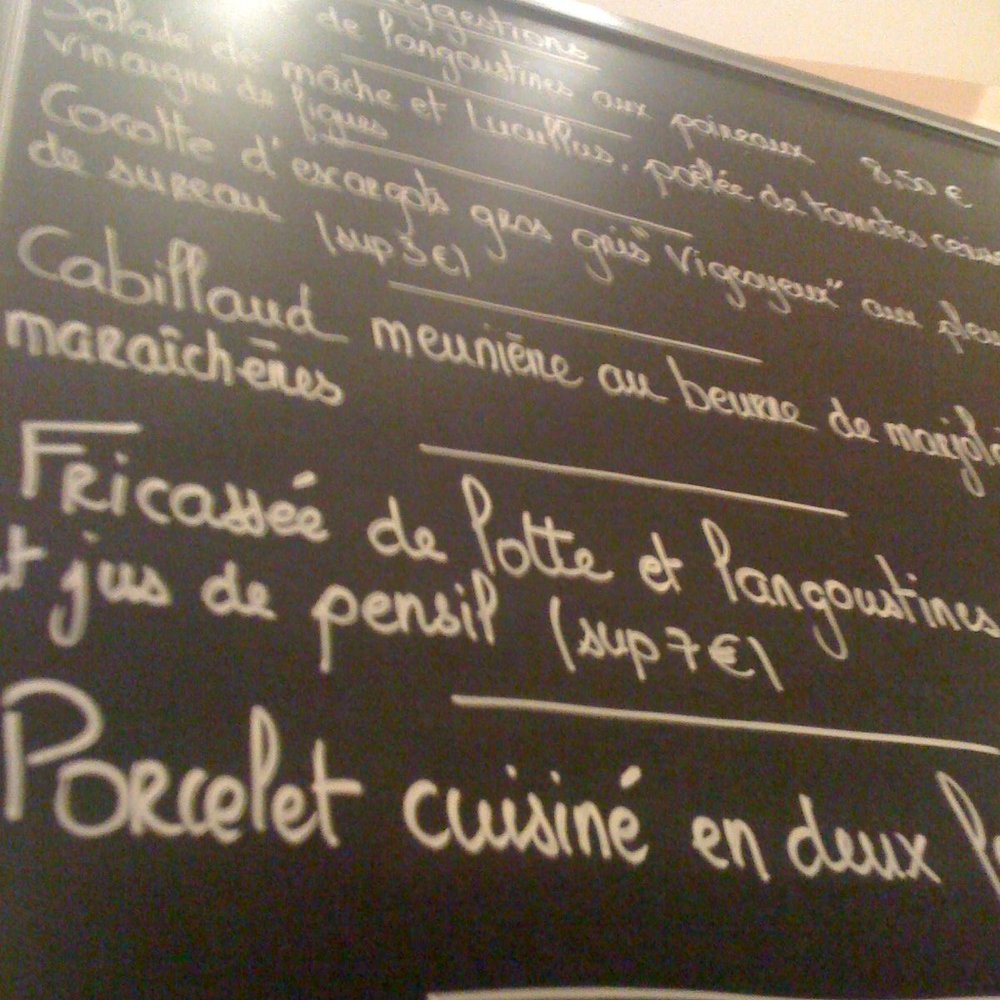 Suggestions
de langoustines aux poireaux 8,50 €
Salade de mâche et Lucullus, poêlée de tomates ceris
vinaigre de figues
Cocotte d'escargots gros gris "Vigeoyeux" aux pleu
de sureau (sup 3 €)
Cabillaud meunière au beurre de marjola
maraîchères
Fricassée de lotte et langoustines
et jus de persil (sup 7 €)
Porcelet cuisiné en deux